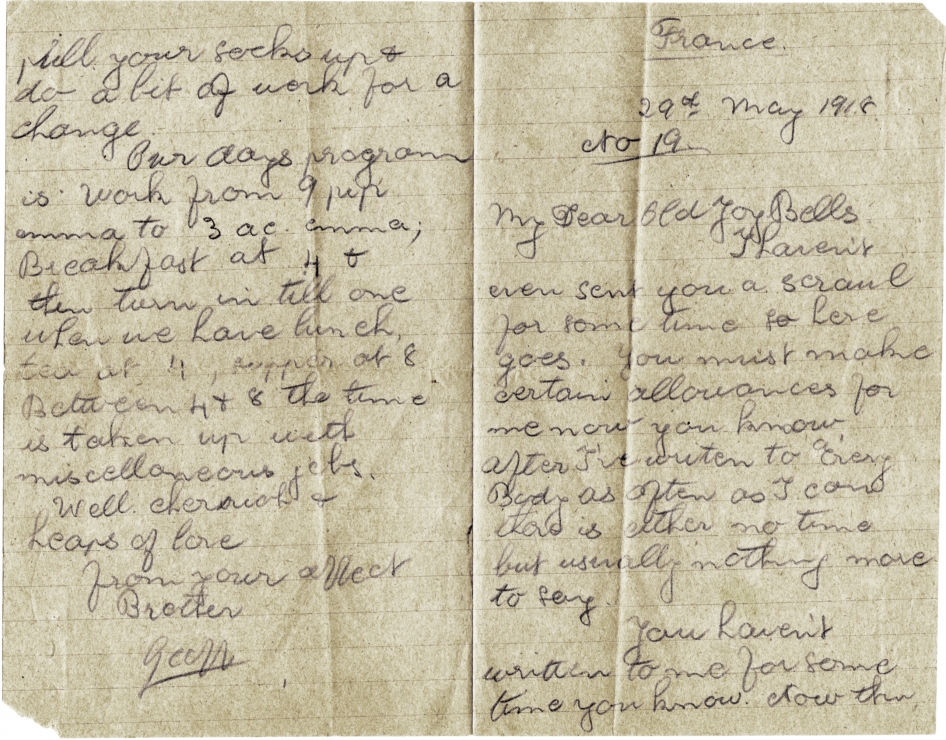 France.
29th May 1918
No 19
My Dear Old Joy Bells
I haven't
even sent you a scrawl
for some time so here
goes. You must make
certain allowances for
me now you know,
after I've writen to "Every
Body as often as I can
there is either no time
but usually nothing more
to say.
You haven't
written to me for some
time you know. Now then,
pull your socks up &
do a bit of work for a
change.
Our days program
is work from 9 pip
emma to 3 ac. emma;
Breakfast at 4 &
then turn in till one
when we have lunch,
tea at 4, supper at 8
Between 4 & 8 the time
is taken up with
miscellaneous jobs.
Well. &
heaps of love
from your affect
Brother
Geoff